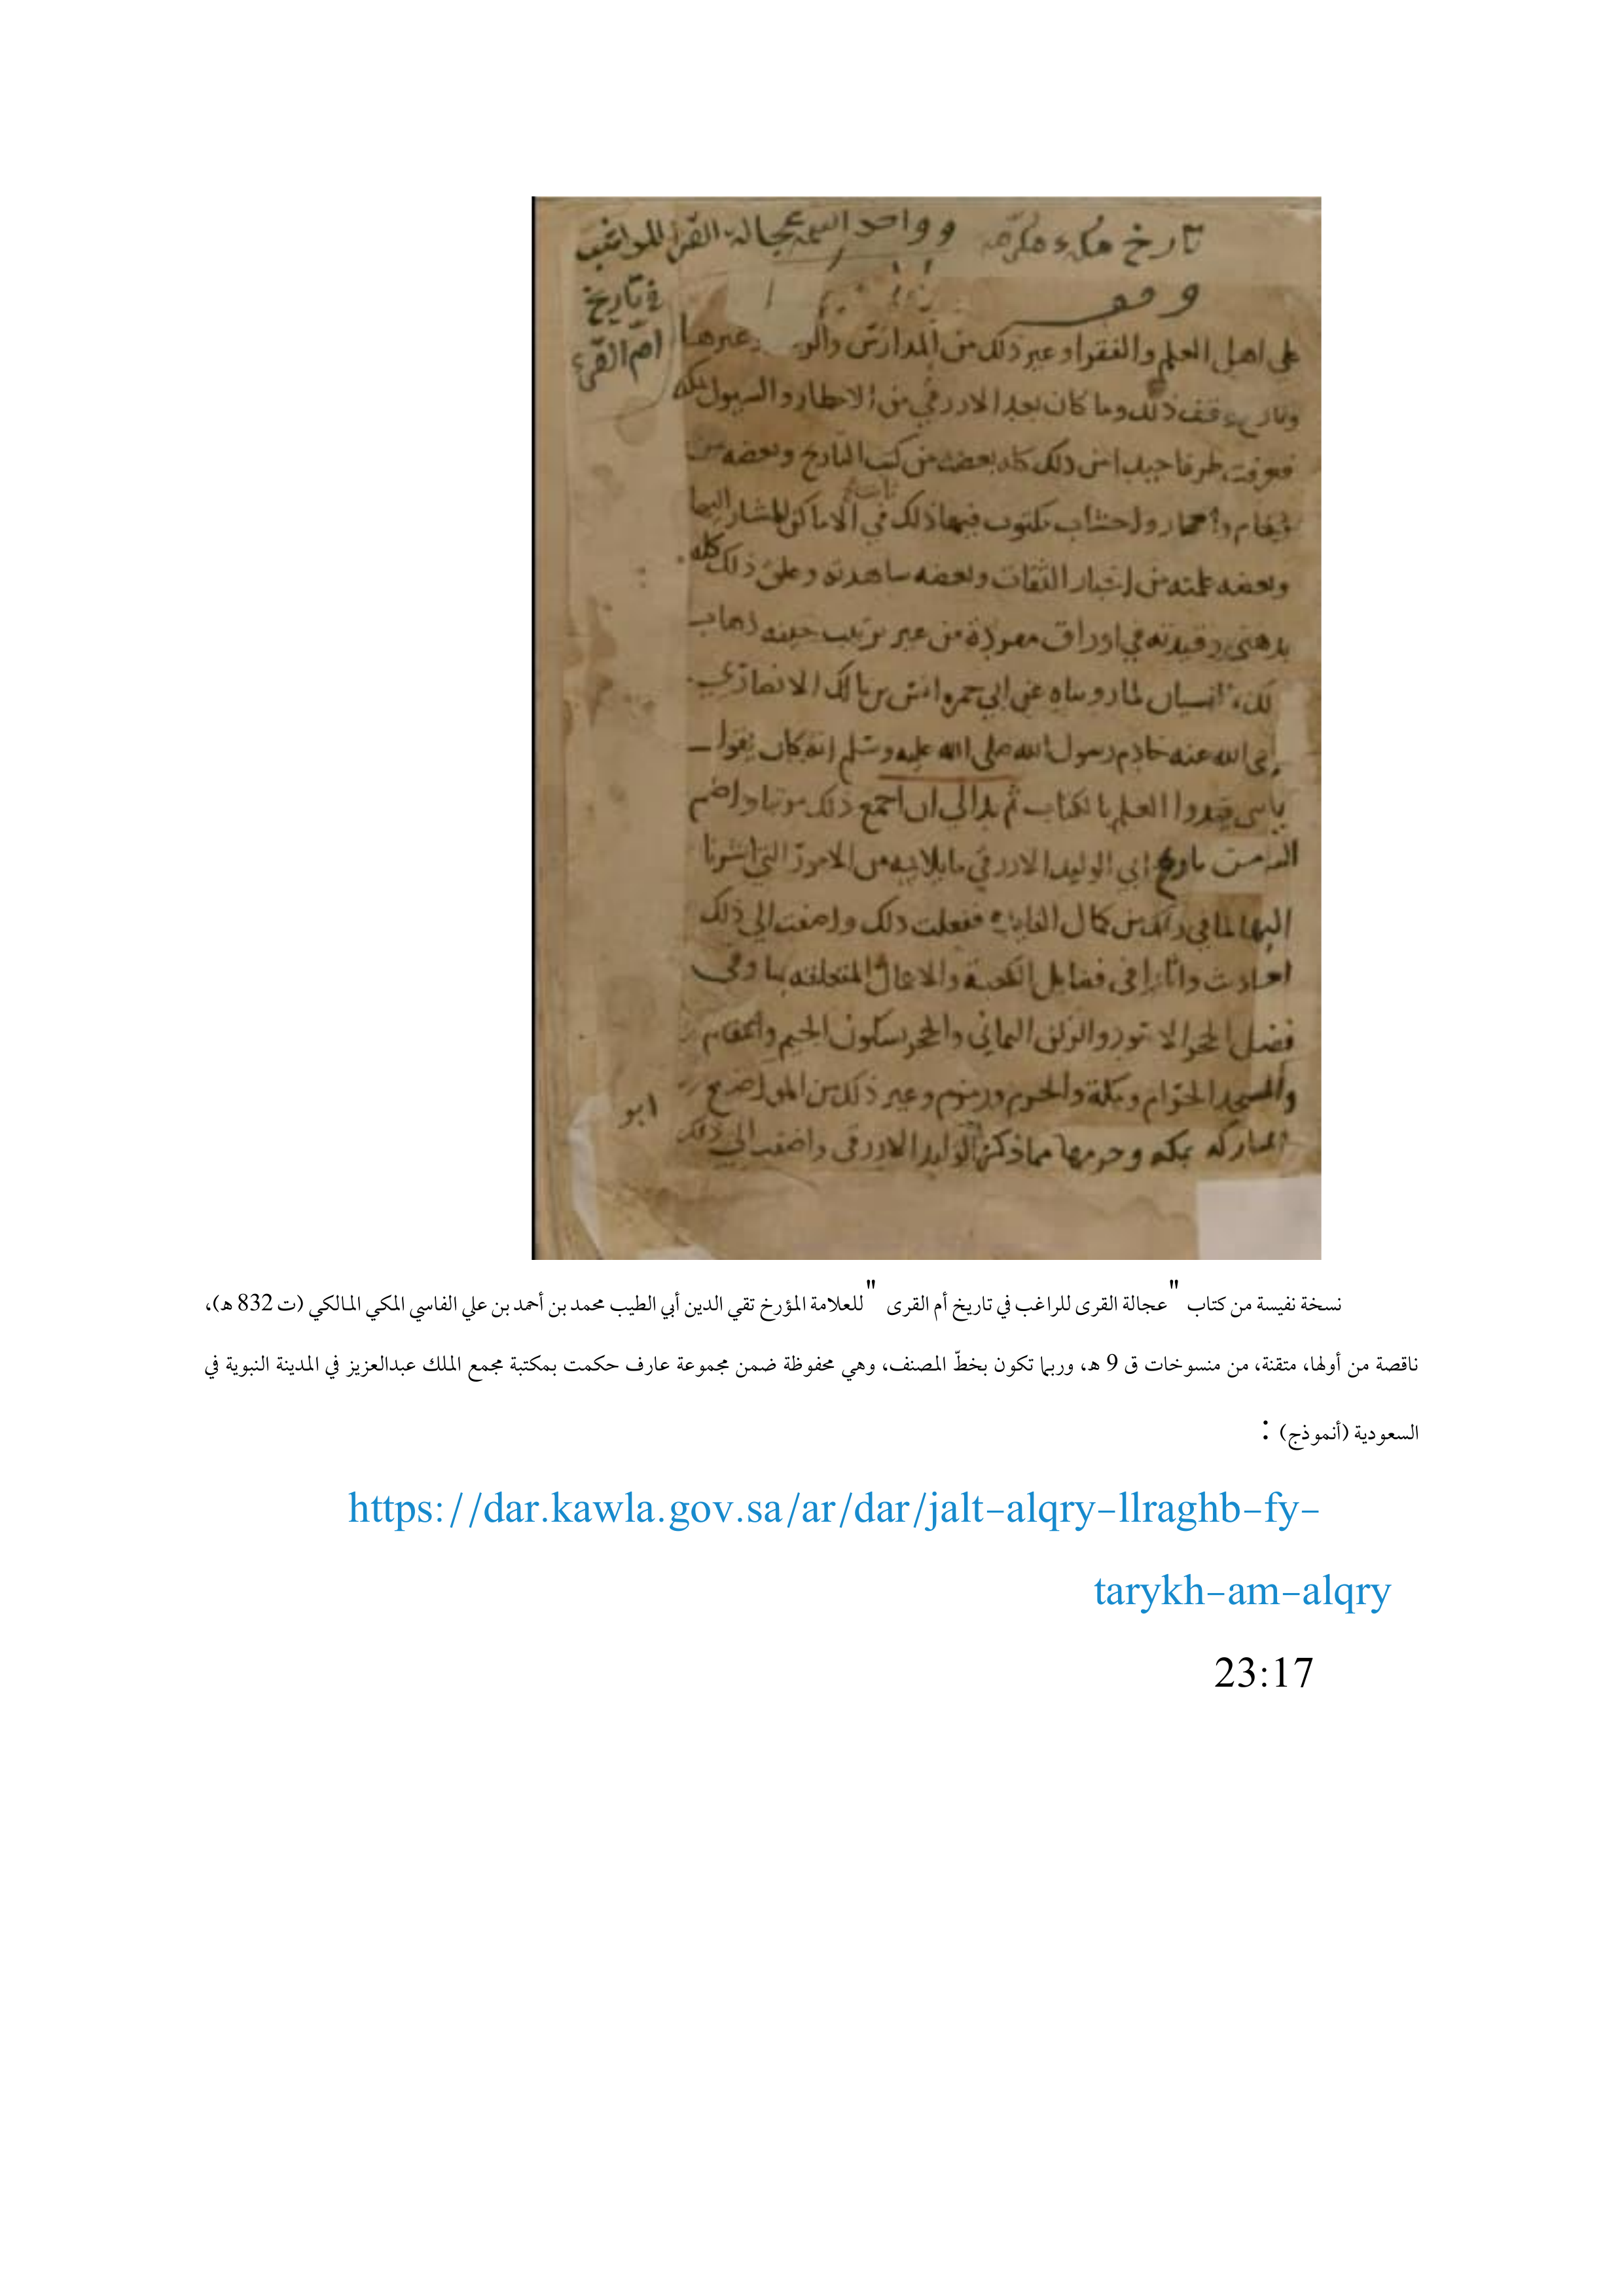 تاريخ مكة مكرمه وواحد اسمه عجالة القرا للراغب
في تاريخ
ام القرى
وقف
على اهل العلم والفقرا وغير ذلك من المدارس وغيرها
وتاريخ وقف ذلك وما كان بعد الازرقي من الامطار والسيول بمكه
فعرفت طرفا جيدا من ذلك كله بعضه من كتب التاريخ وبعضه من
رخام واحجار واخشاب مكتوب فيها ذلك ثابتة في الاماكن المشار اليها
وبعضه علمته من اخبار الثقات وبعضه شاهدته وعلق ذلك كله
بذهني وقيدته في اوراق مفردة من غير ترتيب خيفه ذهاب
ذلك بالنسيان لما رويناه عن ابي حمزه انس بن مالك الانصاري
رضي الله عنه خادم رسول الله صلى الله عليه وسلم انه كان يقول
يا بني قيدوا العلم بالكتاب ثم بدا لي ان اجمع ذلك مرتبا واضم
اليه من تاريخ ابي الوليد الازرقي ما يلائمه من الامور التي اشرنا
اليها لما في ذلك من كمال الفايدة ففعلت ذلك واضفت الى ذلك
احاديث واثارا في فضايل الكعبة والاعمال المتعلقه بها وفي
فضل الحجر الاسود والركن اليماني والحجر بسكون الجيم والمقام
والمسجد الحرام ومكة والحرم وزمزم وغير ذلك من المواضع
المباركه بمكه وحرمها مما ذكره ابو الوليد الازرقي واضفت الى ذلك
نسخة نفيسة من كتاب "عجالة القرى للراغب في تاريخ أم القرى" للعلامة المؤرخ تقي الدين أبي الطيب محمد بن أحمد بن علي الفاسي المكي المالكي (ت 832 هـ)،
ناقصة من أولها، متقنة، من منسوخات ق 9 هـ، وربما تكون بخطّ المصنف، وهي محفوظة ضمن مجموعة عارف حكمت بمكتبة مجمع الملك عبدالعزيز في المدينة النبوية في
السعودية (أنموذج) :
https://dar.kawla.gov.sa/ar/dar/jalt-alqry-llraghb-fy-
tarykh-am-alqry
23:17